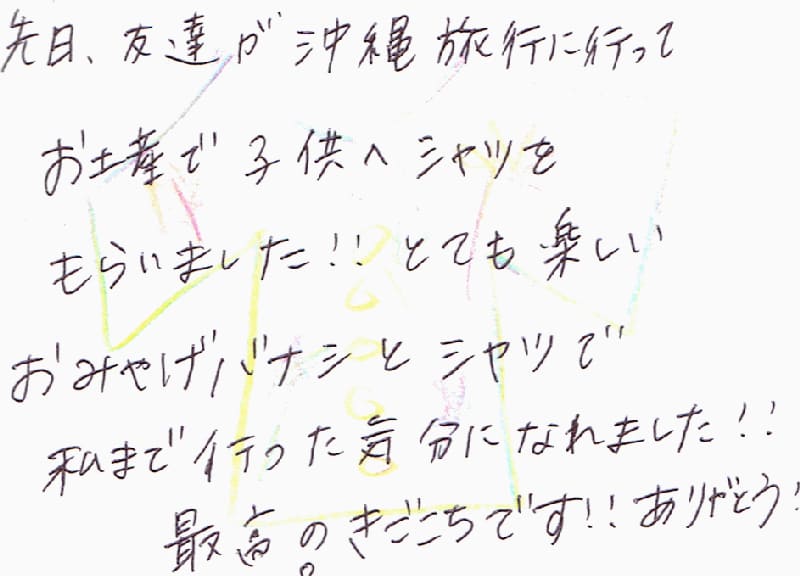 先日、友達が沖縄旅行に行って
お土産で子供へシャツを
もらいました!!とても楽しい
おみやげバナシとシャツで
私まで行った気分になれました!!
最高のきごこちです!!ありがとう!